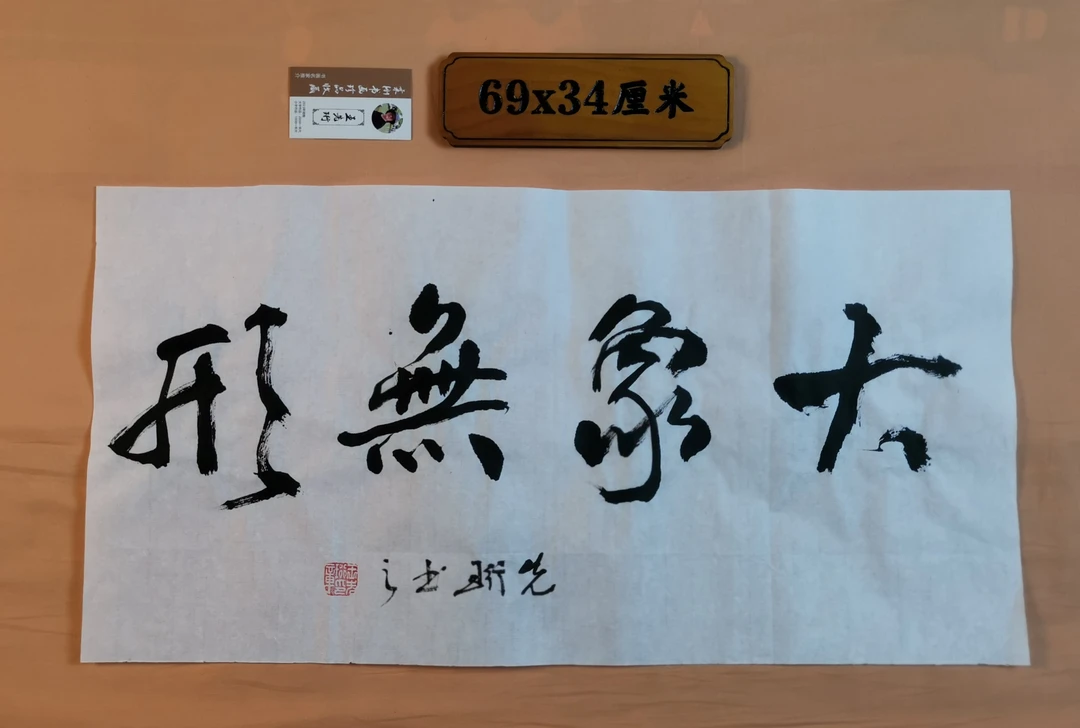 69x34厘米
大象無形
先珩书之